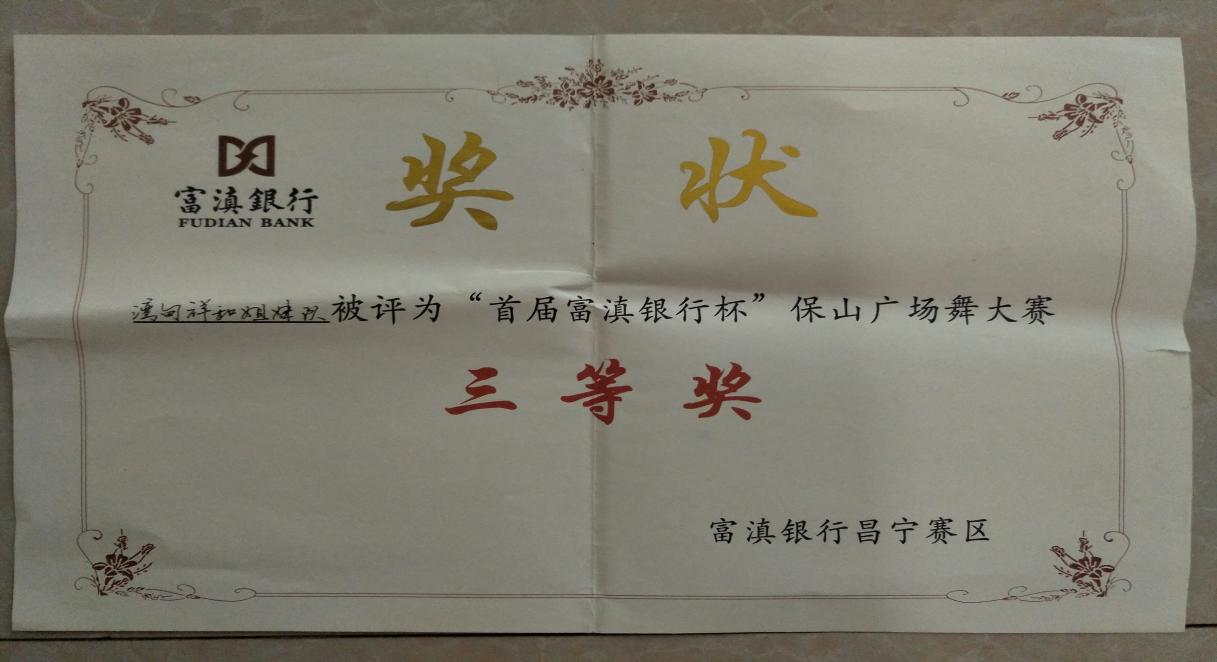 富滇銀行
FUDIAN BANK
奖状
湾甸祥和姐妹队被评为“首届富滇银行杯”保山广场舞大赛
三等奖
富滇银行昌宁赛区